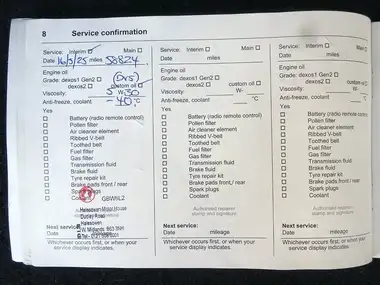 8 Service confirmation
Service: Interim Main
Date 16/5/25 miles 58824
Engine oil
Grade: dexos1 Gen2
dexos2 custom oil
(DVS)
Viscosity: 5 W-30
Anti-freeze, coolant -40 °C
Yes
Battery (radio remote control)
Pollen filter
Air cleaner element
Ribbed V-belt
Toothed belt
Fuel filter
Gas filter
Transmission fluid
Brake fluid
Tyre repair kit
Brake pads front / rear
plugs
GBWIL2
Halesowen Motor House
Dudley Road
Halesowen
W. Midlands B63 3NH
Next service:
Date mileage
Whichever occurs first, or when your
service display indicates.
Service: Interim Main
Date miles
Engine oil
Grade: dexos1 Gen2
dexos2 custom oil
Viscosity: W-
Anti-freeze, coolant °C
Yes
Battery (radio remote control)
Pollen filter
Air cleaner element
Ribbed V-belt
Toothed belt
Fuel filter
Gas filter
Transmission fluid
Brake fluid
Tyre repair kit
Brake pads front / rear
Spark plugs
Coolant
Authorised repairer
stamp and signature
Next service:
Date mileage
Whichever occurs first, or when your
service display indicates.
Service: Interim Main
Date miles
Engine oil
Grade: dexos1 Gen2
dexos2 custom oil
Viscosity: W-
Anti-freeze, coolant °C
Yes
Battery (radio remote control)
Pollen filter
Air cleaner element
Ribbed V-belt
Toothed belt
Fuel filter
Gas filter
Transmission fluid
Brake fluid
Tyre repair kit
Brake pads front / rear
Spark plugs
Coolant
Authorised repairer
stamp and signature
Next service:
Date mileage
Whichever occurs first, or when your
service display indicates.